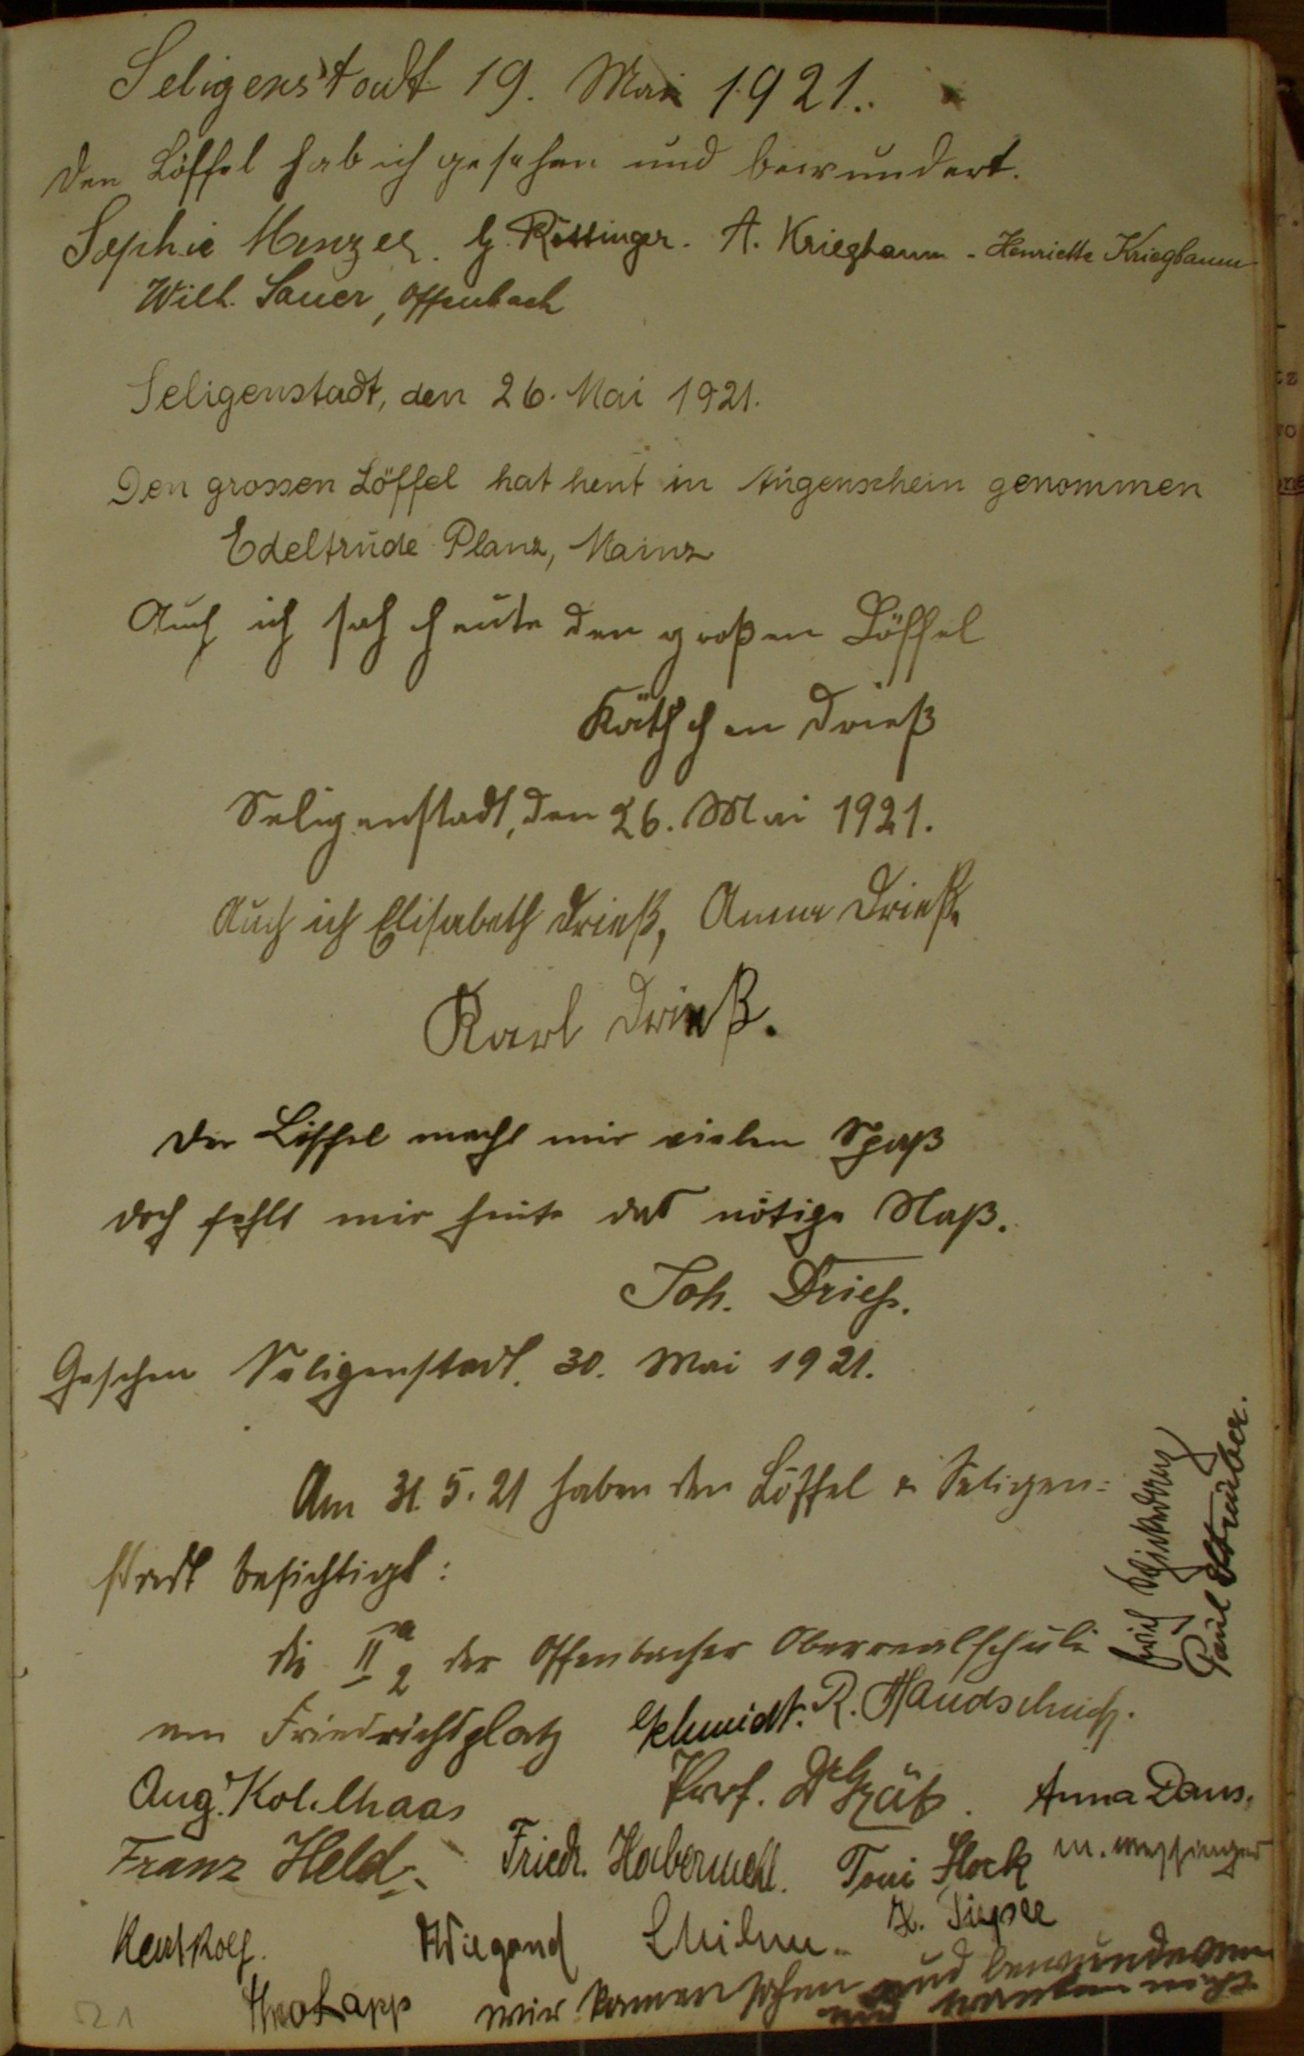 Seligenstadt 19. Mai 1921.
Den Löffel hab ich gesehen und bewundert.
Sophie Menzel. G. Rettinger. A. Kriegbaum - Henriette Kriegbaum
Wilh. Sauer, Offenbach
Seligenstadt, den 26. Mai 1921.
Den grossen Löffel hat heut in Augenschein genommen
Edeltrude Planz, Mainz
Auch ich sah heute den großen Löffel
Käthchen Drieß
Seligenstadt, den 26. Mai 1921.
Auch ich Elisabeth Drieß, Anna Drieß.
Karl Drieß.
Der Löffel macht mir vielen Spaß
doch fehlt mir heute das nötige Naß.
Joh. Driess.
Gesehen Seligenstadt. 30. Mai 1921.
Am 31.5.21 haben den Löffel u. Seligen=
stadt besichtigt:
die IIa2 der Offenbacher Oberrealschule
am Friedrichsplatz Schmidt. R. Handschuh.
Paul
Aug. Kohlhaas Prof. Dr Anna Daus.
Franz Held. Friedr. Habermehl. Toni Flock M. Messinger
Karl Rolf. Wiegand
Theo Lapp wir kamen sahen und bewunderten